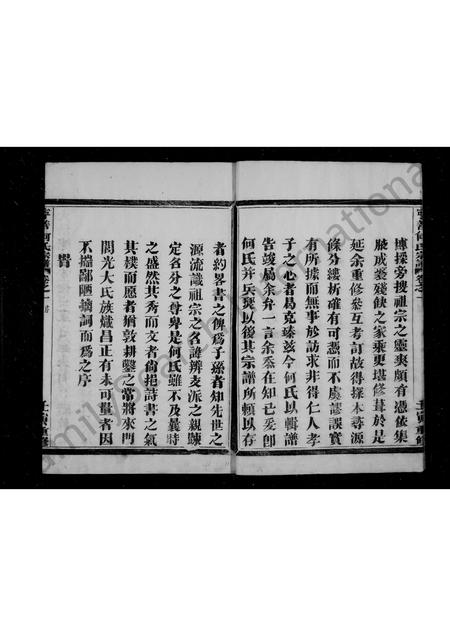 博採旁搜祖宗之靈爽頗有憑依集
腋成裘殘缺之家乘更堪修葺於是
延余重修參互考訂故得探本尋源
條分縷析確有可憑而不虞謬誤實
有所據而無事於訪求非得仁人孝
子之心者曷克臻茲今何氏以輯譜
告竣屬余弁一言余忝在知己爰卽
何氏并兵燹以後其宗譜所賴以存
者約畧書之俾爲子孫者知先世之
源流識祖宗之名諱辨支派之親疎
定名分之尊卑是何氏雖不及曩時
之盛然其秀而文者尙挹詩書之氣
其樸而愿者猶敦耕鑿之常將來門
閭光大氏族熾昌正有未可量者因
不揣鄙陋摛詞而爲之序
壬寅重修
FamilySearch International